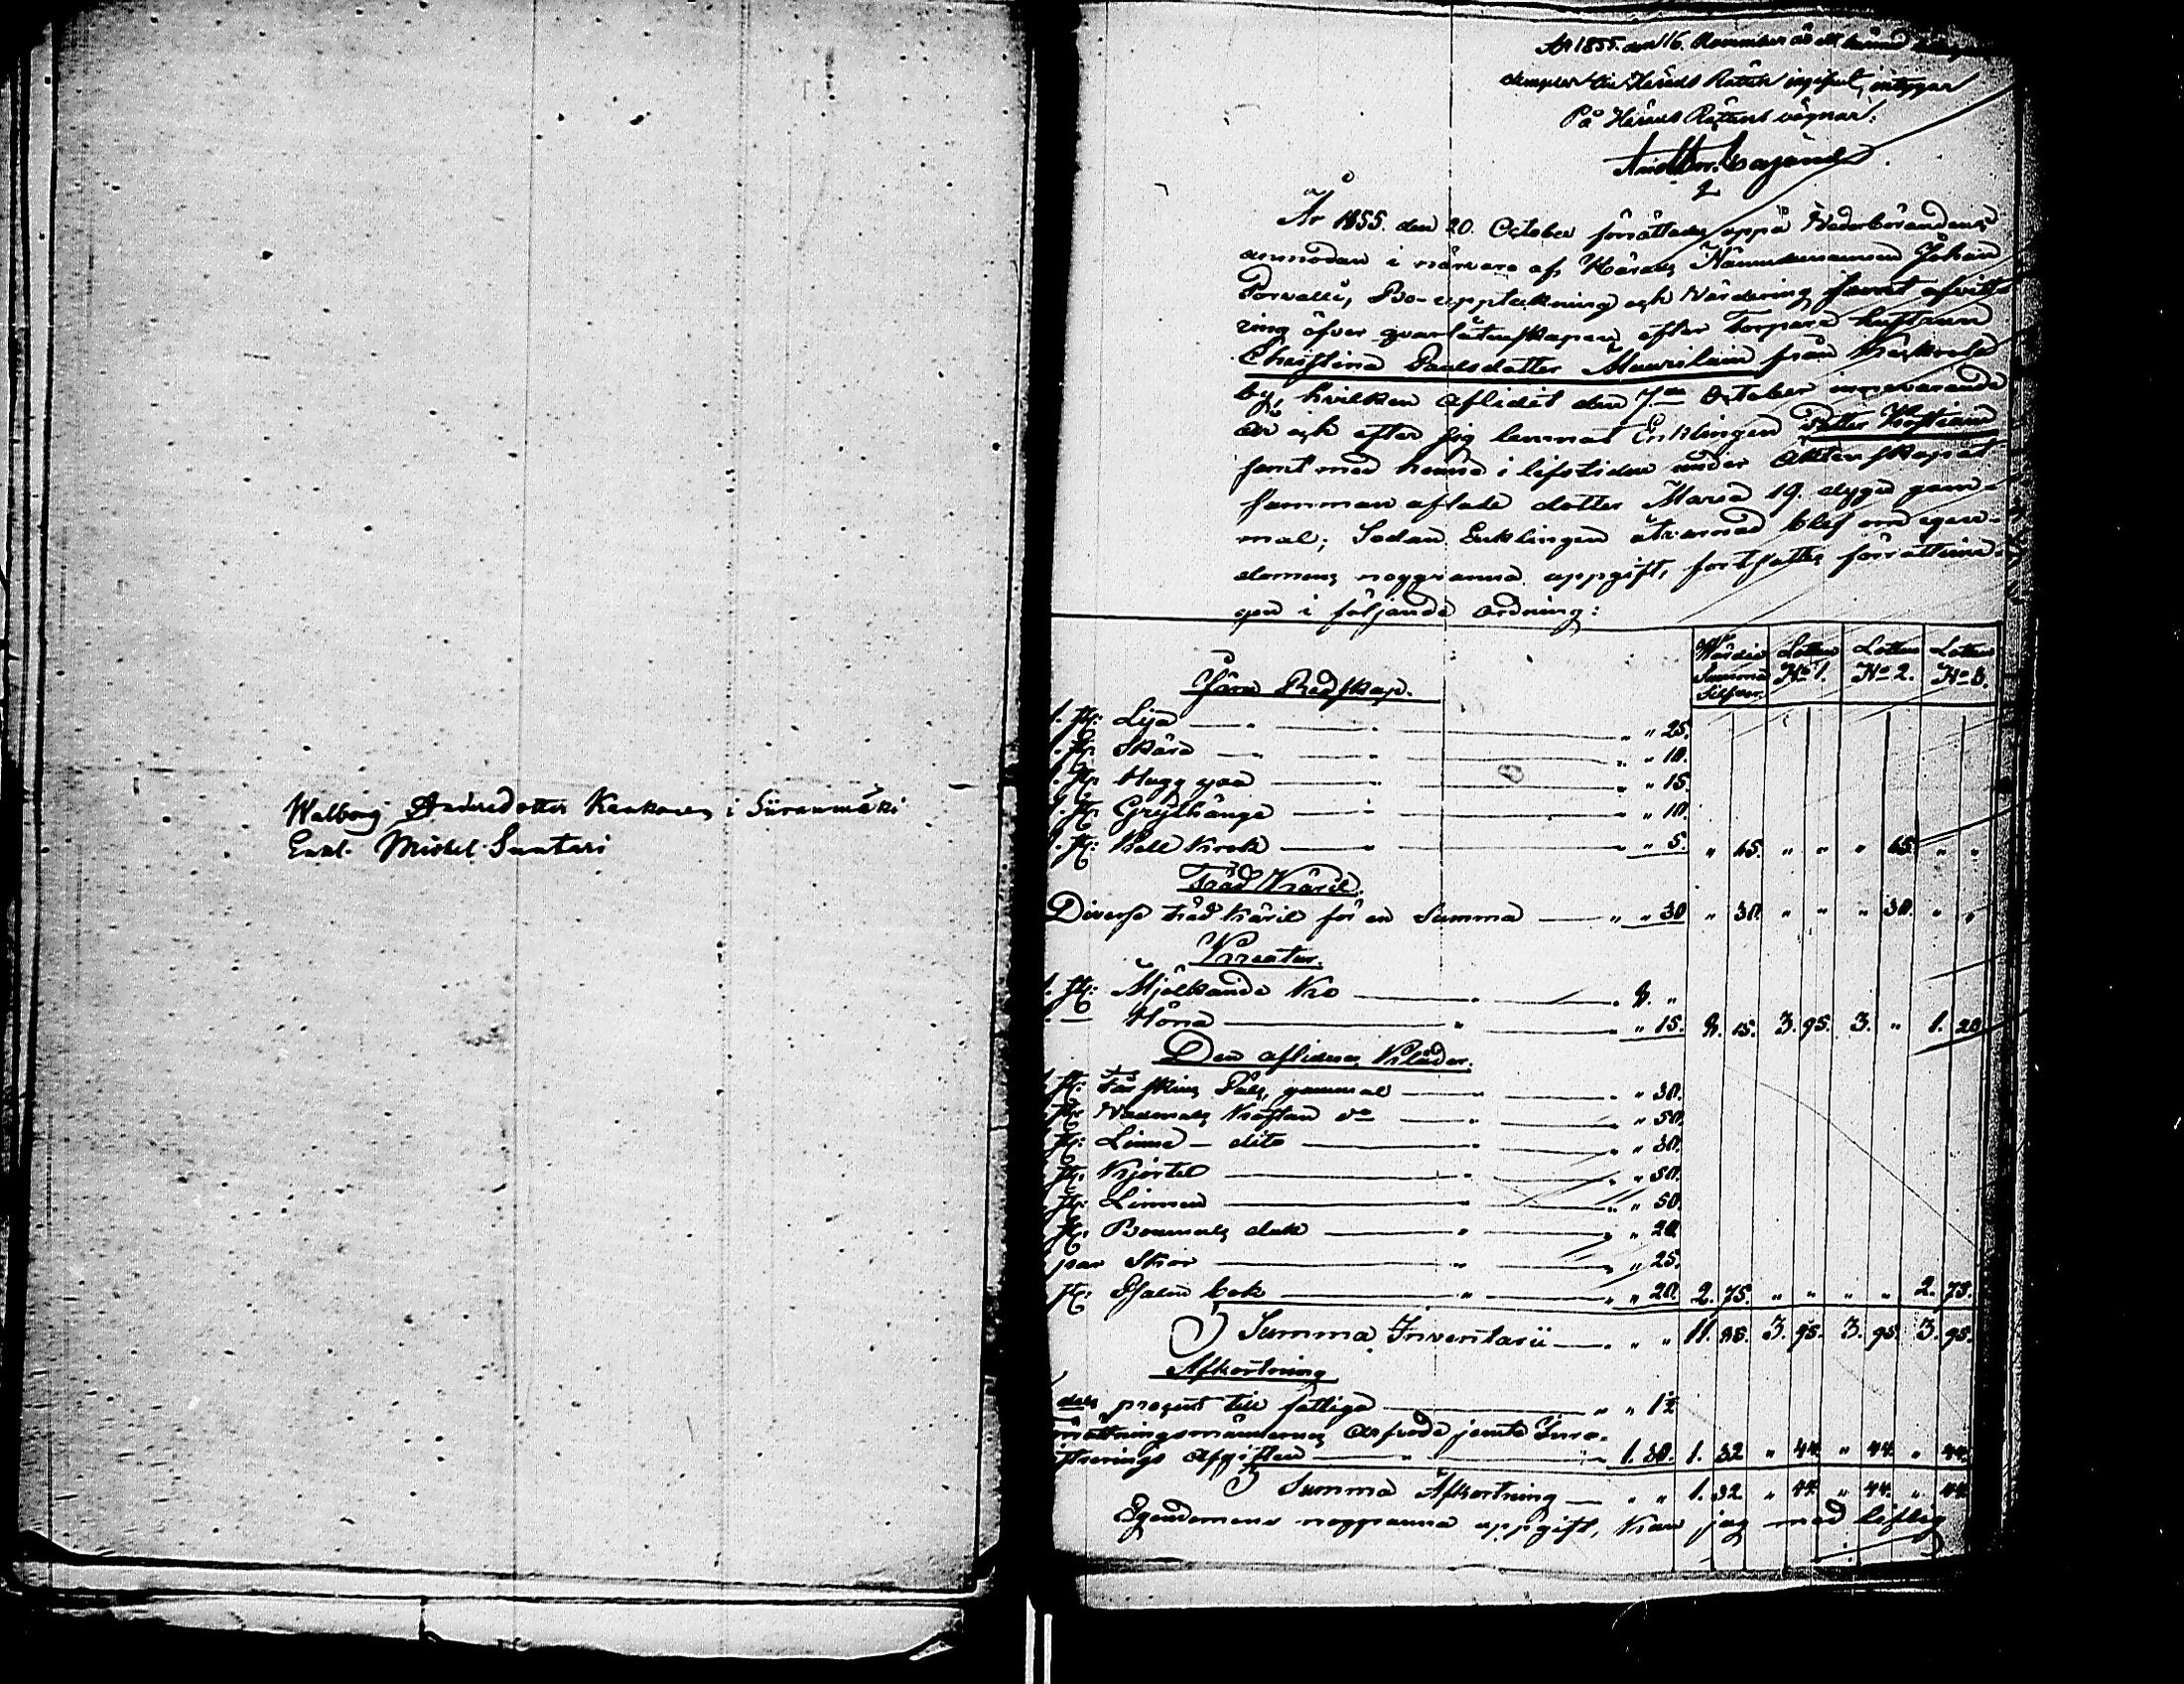 Walborg Andersdotter Kankanen i Siiranmäki
Enkl. Michel Suntari
År 1855. den 16. November är ett lika
exemplar till Härads Rätten ingifvet, intygar
På Härads Rättens vägnar:
2
År 1855. den 20. October förrättades uppå Wederbörandens
anmodan i närvaro af Härads Nämndemannen Johan
Porvalli, Bo-uppteckning och Värdering samt afvitt-
ring öfver qvarlåtenskapen efter Torpare hustrun
Christina Paulsdotter Muurilain från
by, hvilken aflidit den 7de October innevarande
år och efter sig lemnat Enklingen Petter
samt med henne i lifstiden under Äktenskapet
samman aflade dotter Maria 19. dygn gam-
mal; Sedan Enklingen åtvarnad blef om egen-
domens noggranna uppgift, fortsattes förrättnin-
gen i följande ordning:
Wärde Summa Silfver. Lotten No 1. Lotten No 2. Lotten No 3.
Järn Redskap.
1. st: Lija " " 25.
1. st: Skära " " 10.
1. st: Hugg yxa " " 15
1. st: Grythänge " " 10.
1. st: Krok " " 5. " 65. " " " 65. " "
Träd Käril.
Diverse träd käril för en Summa " " 30 " 30. " " " 30. " "
Kreatur.
1. st: Mjölkande Ko 8. "
Höna " 15. 8. 15. 3. 95. 3. " 1. 20
Den aflidnas Kläder.
st: Fårskins Päls, gammal " " 30.
st: Wadmals Kaftan do " " 50.
st: Linne dito " " 30.
st: Kjortel " " 50.
st: Linnen " " 50.
st: Bomulls duk " " 20
par Skor " " 25.
st: Psalm bok " " 20. 2. 75. " " " " 2. 75.
Summa Inventarii " " 11. 85. 3. 95. 3. 95. 3. 95.
Afkortning
dels procent till fattige " " 1½
rättningsmännernes arfvode jemte
strerings Afgiften 1. 30. 1. 32 " 44 " 44 " 44.
Summa Afkortning " " 1. 32 " 44 " 44 " 44
Egendomens noggranna uppgift, kan jag med liflig